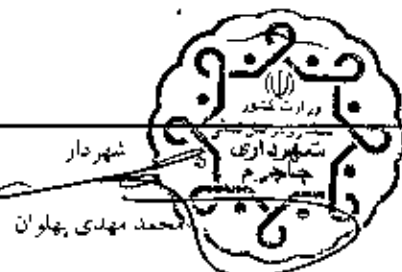 وزارت کشور
شهرداری
جاجرم
شهردار
محمد مهدی پهلوان